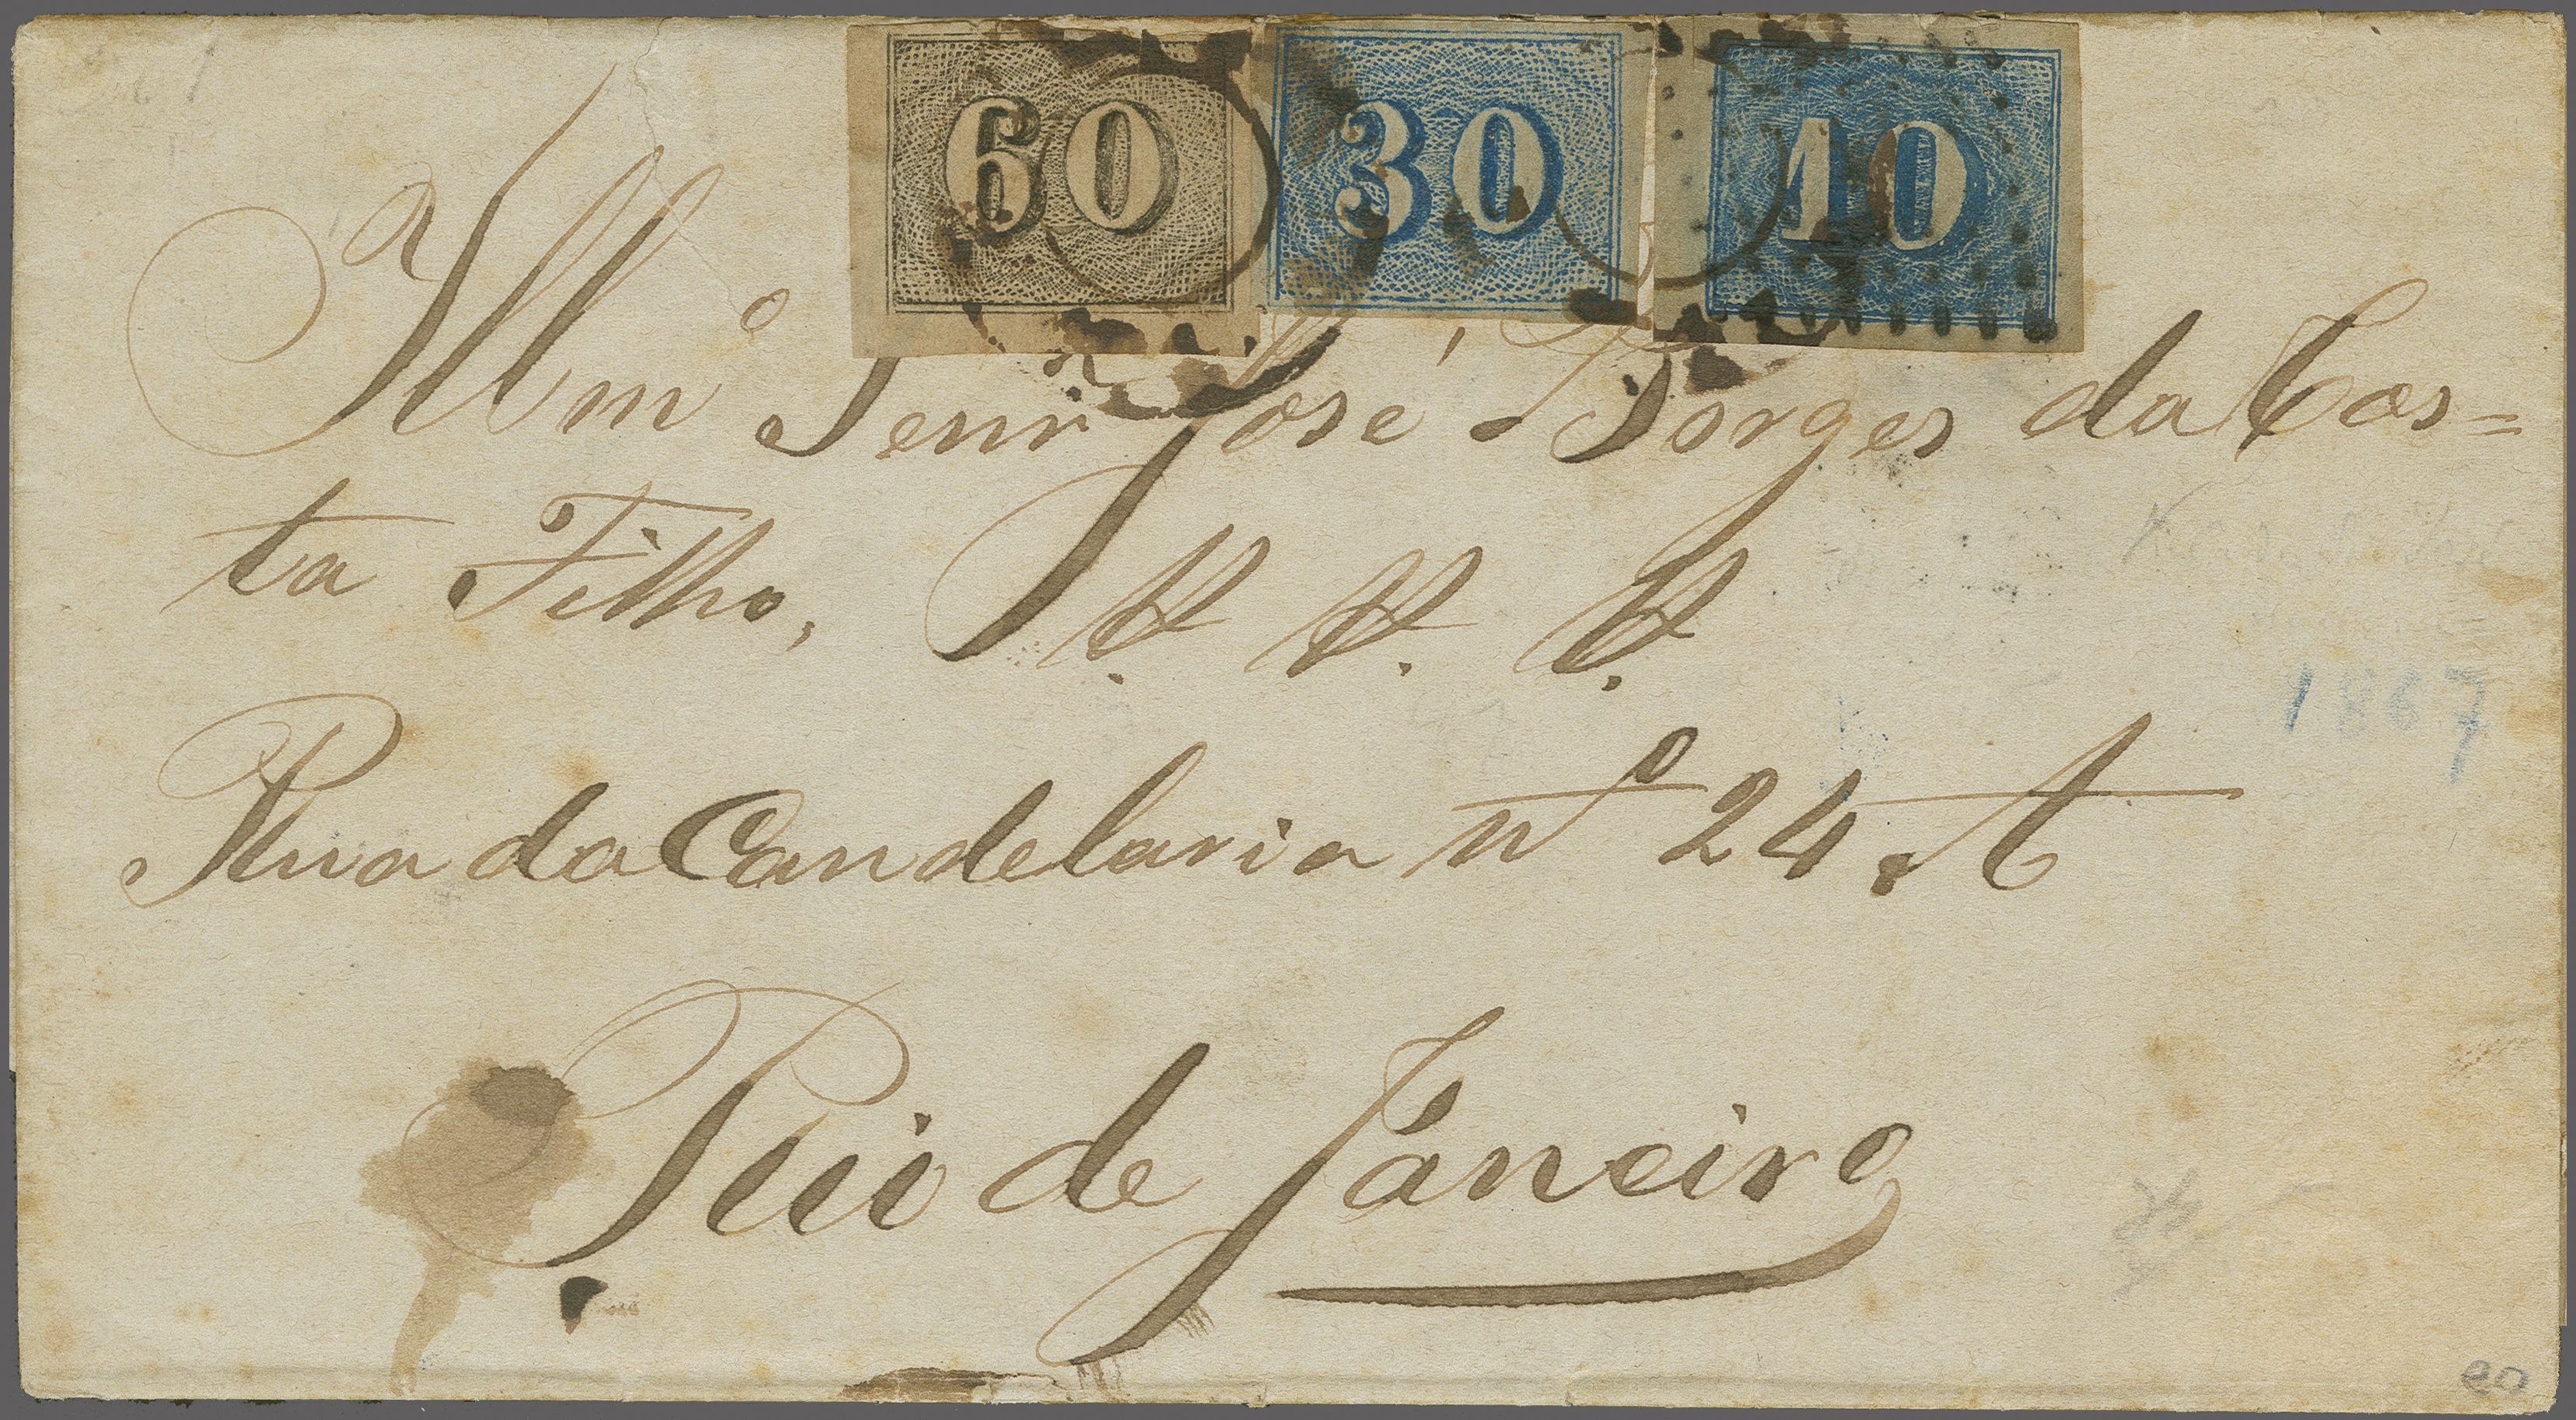 60 30 10
Illmo Senr José Borges da Cos=
ta Filho,
Rua da Candelaria no 24. A
1867
Rio de Janeiro